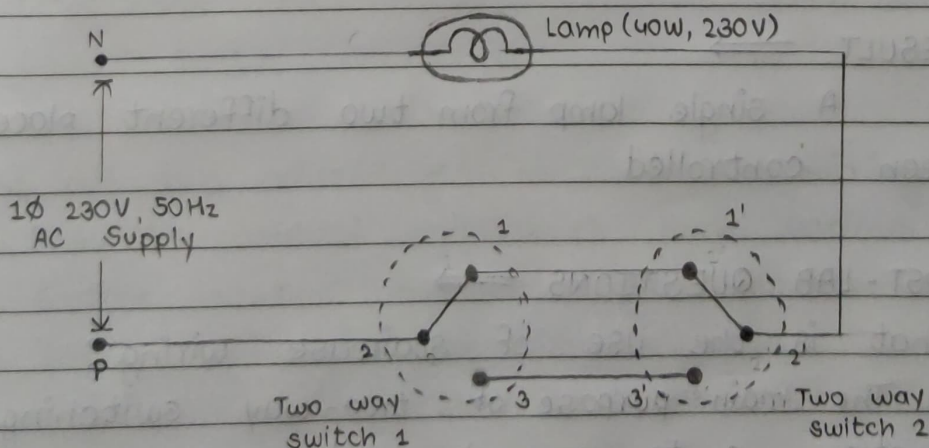 N
Lamp (40W, 230V)
1Ø 230V, 50Hz
AC Supply
P
1
2
3
1'
2'
3'
Two way
switch 1
Two way
switch 2